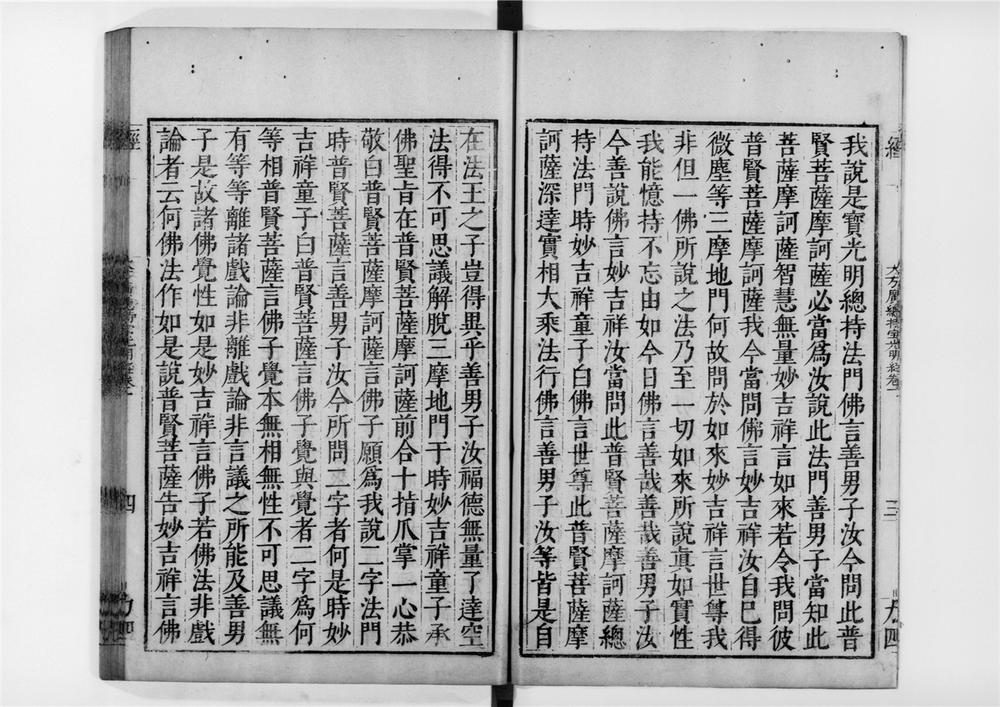 我說是寶光明總持法門佛言善男子汝今問此普
賢菩薩摩訶薩必當爲汝說此法門善男子當知此
菩薩摩訶薩智慧無量妙吉祥言如來若令我問彼
普賢菩薩摩訶薩我今當問佛言妙吉祥汝自已得
微塵等三摩地門何故問於如來妙吉祥言世尊我
非但一佛所說之法乃至一切如來所說真如實性
我能憶持不忘由如今日佛言善哉善哉善男子汝
今善說佛言妙吉祥汝當問此普賢菩薩摩訶薩總
持法門時妙吉祥童子白佛言世尊此普賢菩薩摩
訶薩深達實相大乘法行佛言善男子汝等皆是自
經
三
在法王之子豈得異乎善男子汝福德無量了達空
法得不可思議解脫三摩地門于時妙吉祥童子承
佛聖旨在普賢菩薩摩訶薩前合十指爪掌一心恭
敬白普賢菩薩摩訶薩言佛子願爲我說二字法門
時普賢菩薩言善男子汝今所問二字者何是時妙
吉祥童子白普賢菩薩言佛子覺與覺者二字爲何
等相普賢菩薩言佛子覺本無相無性不可思議無
有等等離諸戲論非離戲論非言議之所能及善男
子是故諸佛覺性如是妙吉祥言佛子若佛法非戲
論者云何佛法作如是說普賢菩薩告妙吉祥言佛
經
四